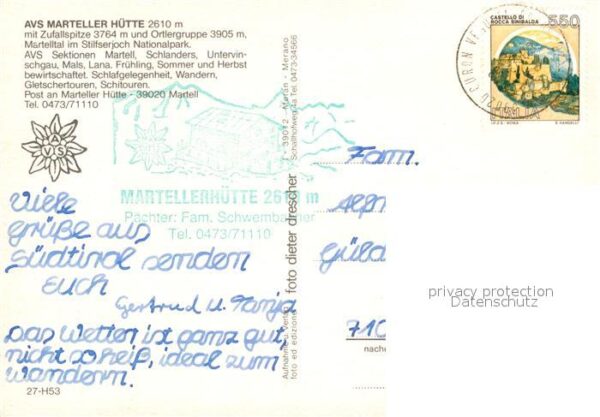 AVS MARTELLER HÜTTE 2610 m
mit Zufallspitze 3764 m und Ortlergruppe 3905 m,
Martelltal im Stilfserjoch Nationalpark.
AVS Sektionen Martell, Schlanders, Untervin-
schgau, Mals, Lana. Frühling, Sommer und Herbst
bewirtschaftet. Schlafgelegenheit, Wandern,
Gletschertouren, Schitouren.
Post an Marteller Hütte - 39020 Martell
Tel. 0473/71110
AVS
MARTELLERHÜTTE 2610 m
Pächter: Fam. Schwembacher
Tel. 0473/71110
Viele
grüße aus
Südtirol senden
Euch
Gertrud u. Tanja
Das Wetter ist ganz gut,
nicht so heiß, ideal zum
wandern.
27-H53
Aufnahme u. Verlag
foto ed edizione
foto dieter drescher
39012 - Meran - Merano
Tel. 0473-34566
CASTELLO DI
ROCCA SINIBALDA
550
ITALIA
CURON
Fam.
710
privacy protection
Datenschutz